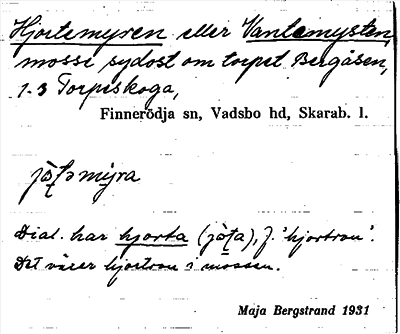 Hjortemyren eller Vantemysten,
mosse sydost om torpet Bergåsen,
1-3 Torpiskoga,
Finnerödja sn, Vadsbo hd, Skarab. l.
Dial. har hjorta (jòta), f. 'hjortron'.
Det växer hjortron i mossen.
Maja Bergstrand 1931